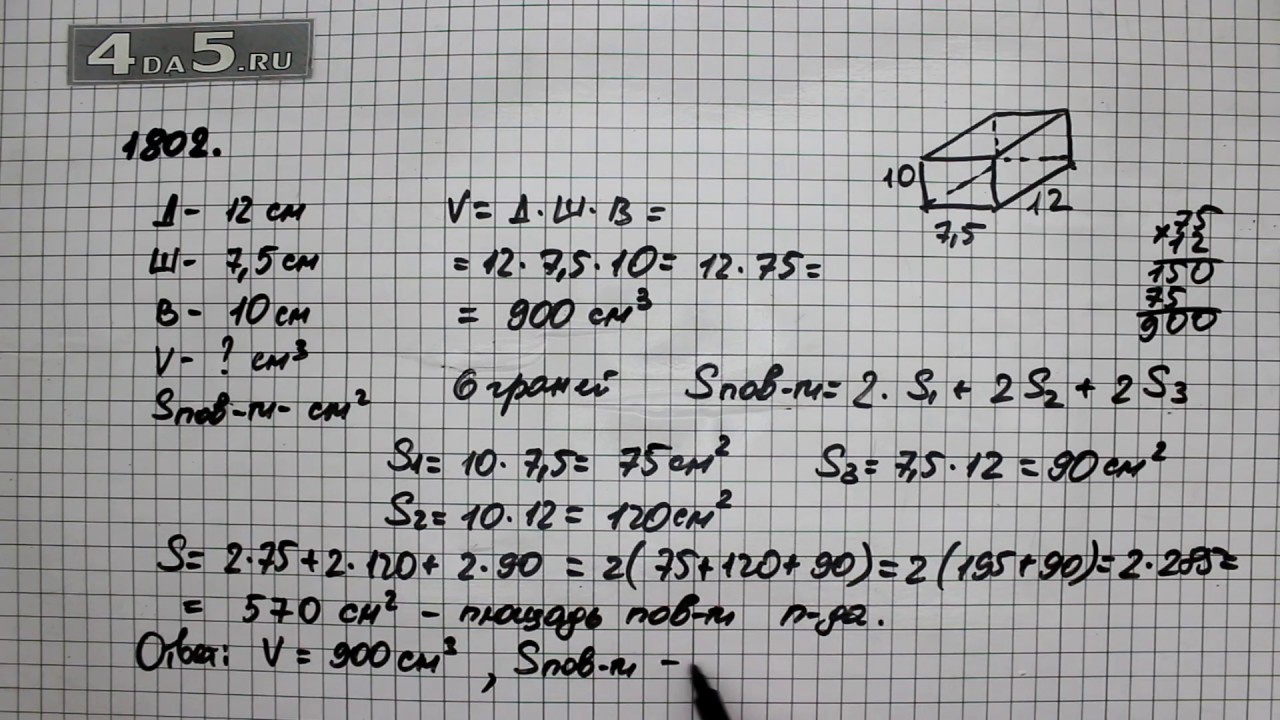 4DA5.RU
1802.
Д - 12 см
Ш - 7,5 см
В - 10 см
V - ? см³
Sпов-ти - см²
V = Д · Ш · В =
= 12 · 7,5 · 10 = 12 · 75 =
= 900 см³
10
7,5
12
×75
12
150
75
900
6 граней Sпов-ти = 2 · S₁ + 2 S₂ + 2 S₃
S₁ = 10 · 7,5 = 75 см² S₃ = 7,5 · 12 = 90 см²
S₂ = 10 · 12 = 120 см²
S = 2 · 75 + 2 · 120 + 2 · 90 = 2 ( 75 + 120 + 90 ) = 2 ( 195 + 90 ) = 2 · 285 =
= 570 см² - площадь пов-ти п-да.
Ответ: V = 900 см³ , Sпов-ти -